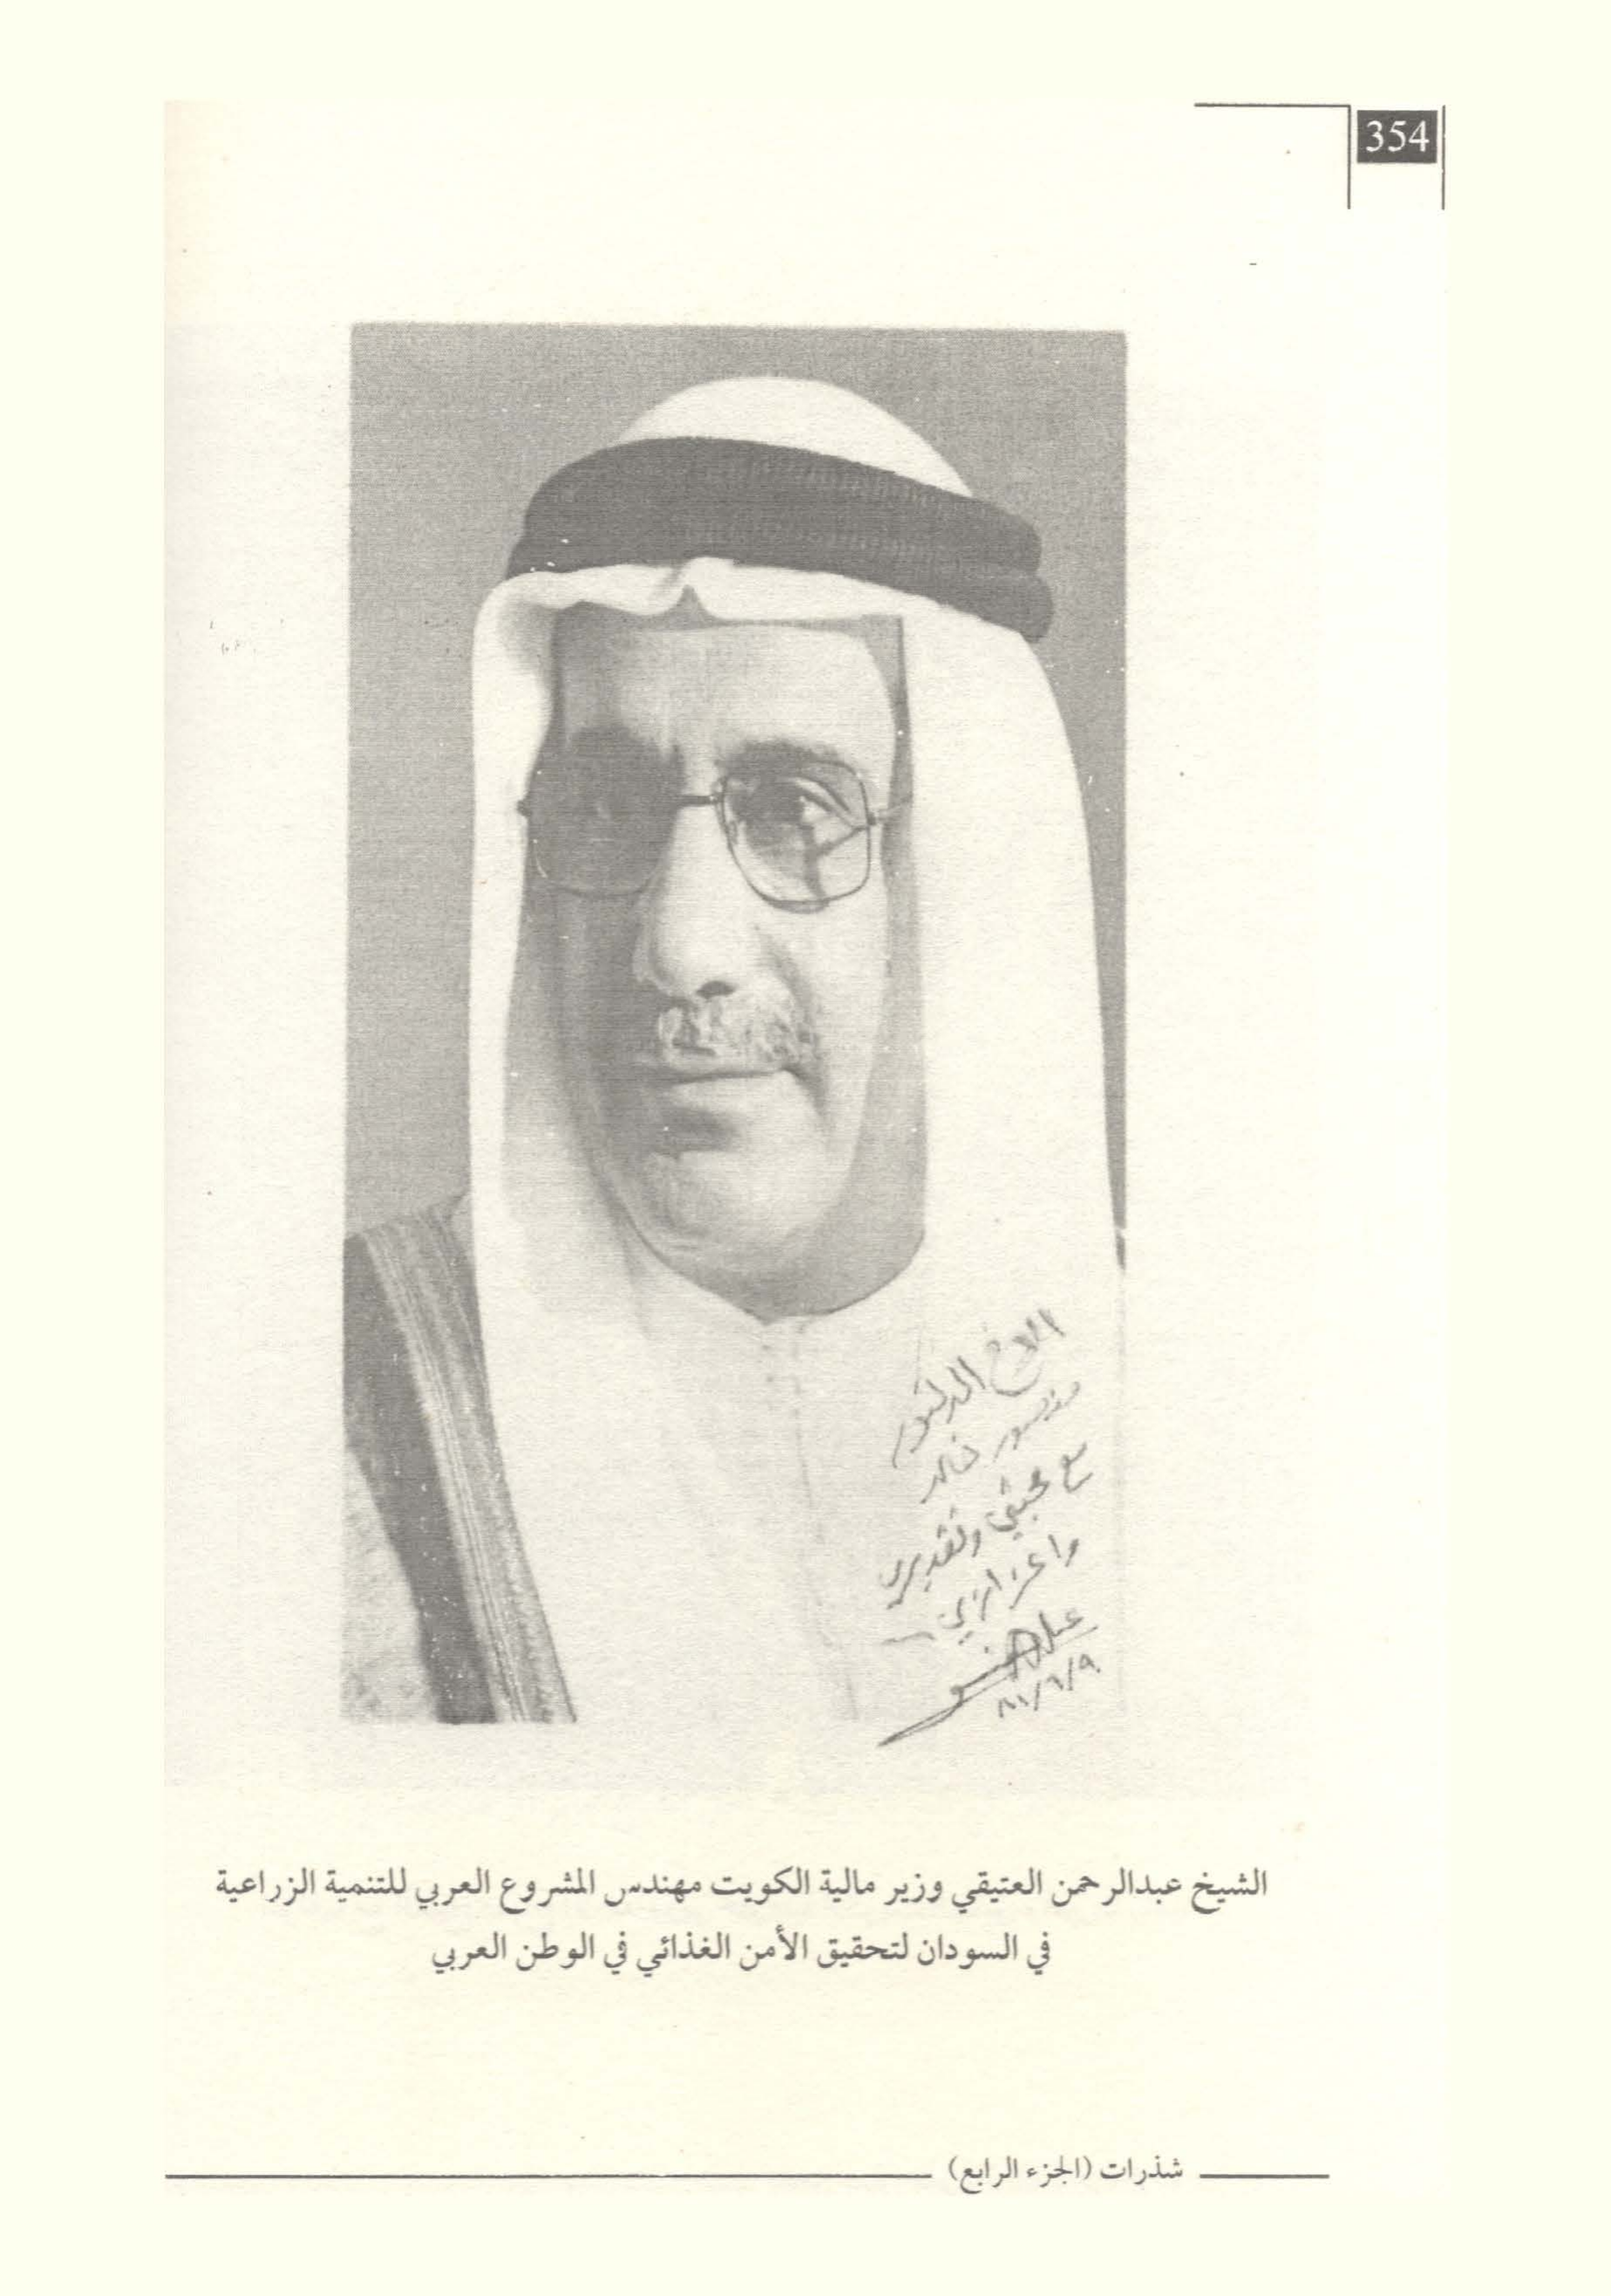 354
الاخ الدكتور
منصور خالد
مع محبتي وتقديري
واعتزازي
٨١/٦/٩
الشيخ عبدالرحمن العتيقي وزير مالية الكويت مهندس المشروع العربي للتنمية الزراعية
في السودان لتحقيق الأمن الغذائي في الوطن العربي
شذرات (الجزء الرابع)